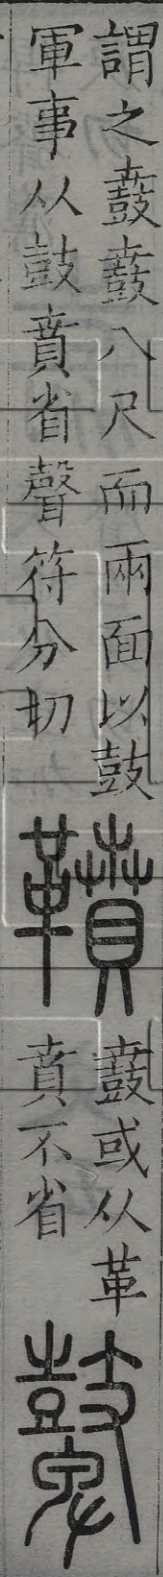 謂之鼖鼖八尺而兩面以鼓
軍事从鼓賁省聲符分切
鼖或从革
賁不省
鼙